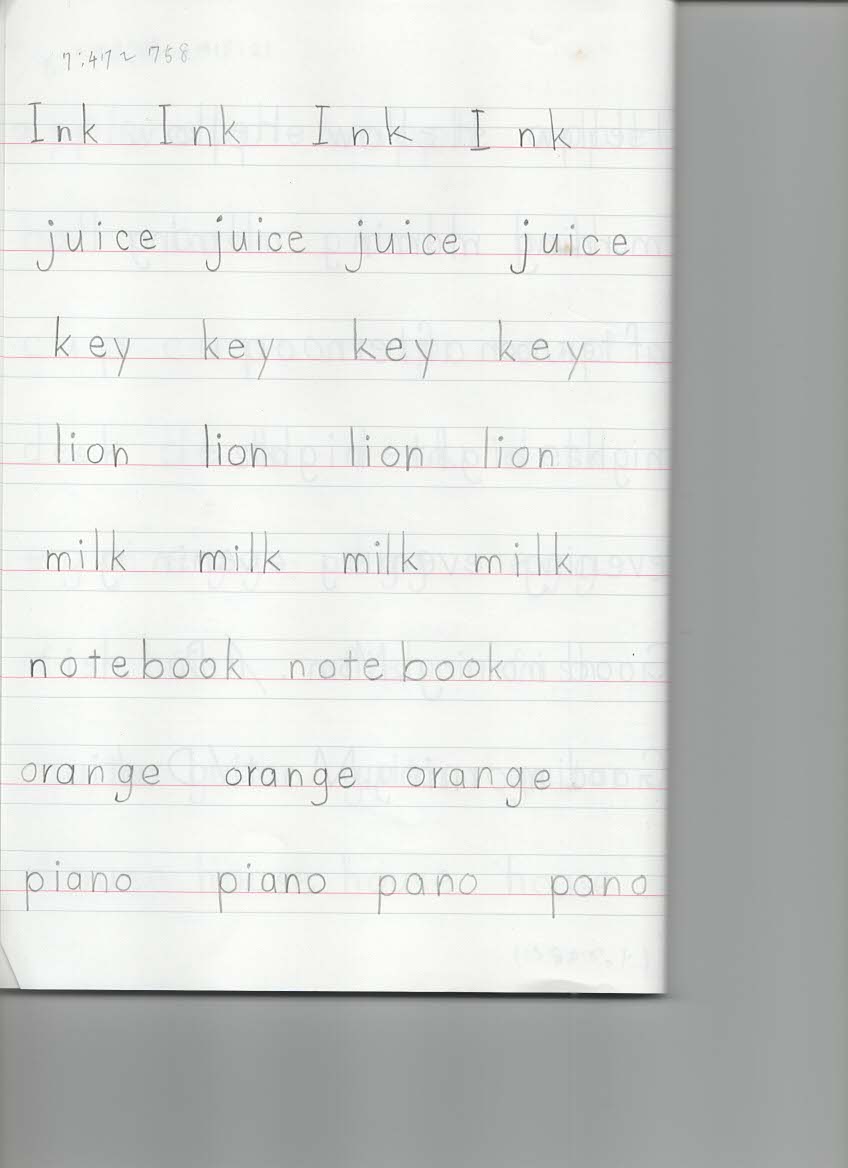 7:47~758
Ink Ink Ink Ink
juice juice juice juice
key key key key
lion lion lion lion
milk milk milk milk
notebook notebook
orange orange orange
piano piano pano pano